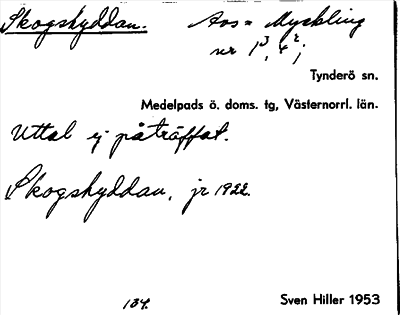 Skogshyddan. Avs = Myckling
nr 1³, 4²;
Tynderö sn.
Medelpads ö. doms. tg, Västernorrl. län.
Uttal ej påträffat.
Skogshyddan, jr 1922.
134. Sven Hiller 1953